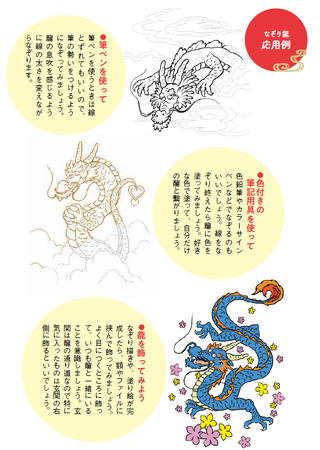 なぞり龍
応用例
●筆ペンを使って
筆ペンを使うときは線
とずれてもいいので、
筆の勢いをつけるよう
になぞってみましょう。
龍の息吹を感じるよう
に線の太さを変えなが
らなぞります。
●色付きの
筆記用具を使って
色鉛筆やカラーサイン
ペンなどでなぞるのも
いいでしょう。線をな
ぞり終えたら龍に色を
塗ってみましょう。好き
な色で塗って、自分だけ
の龍と繋がりましょう。
●龍を飾ってみよう
なぞり描きや、塗り絵が完
成したら、額やファイルに
挟んで飾ってみましょう。
よく目につくところに飾っ
て、いつも龍と一緒にいる
ことを意識しましょう。玄
関は龍の通り道なので特に
気に入ったものは玄関の右
側に飾るといいでしょう。